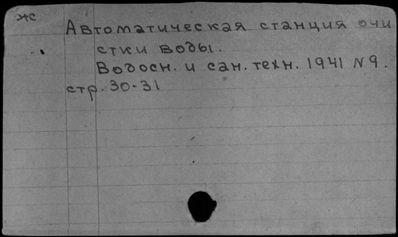 жс
Автоматическая станция очи
стки воды.
Водосн. и сан. техн. 1941 N9.
стр. 30-31